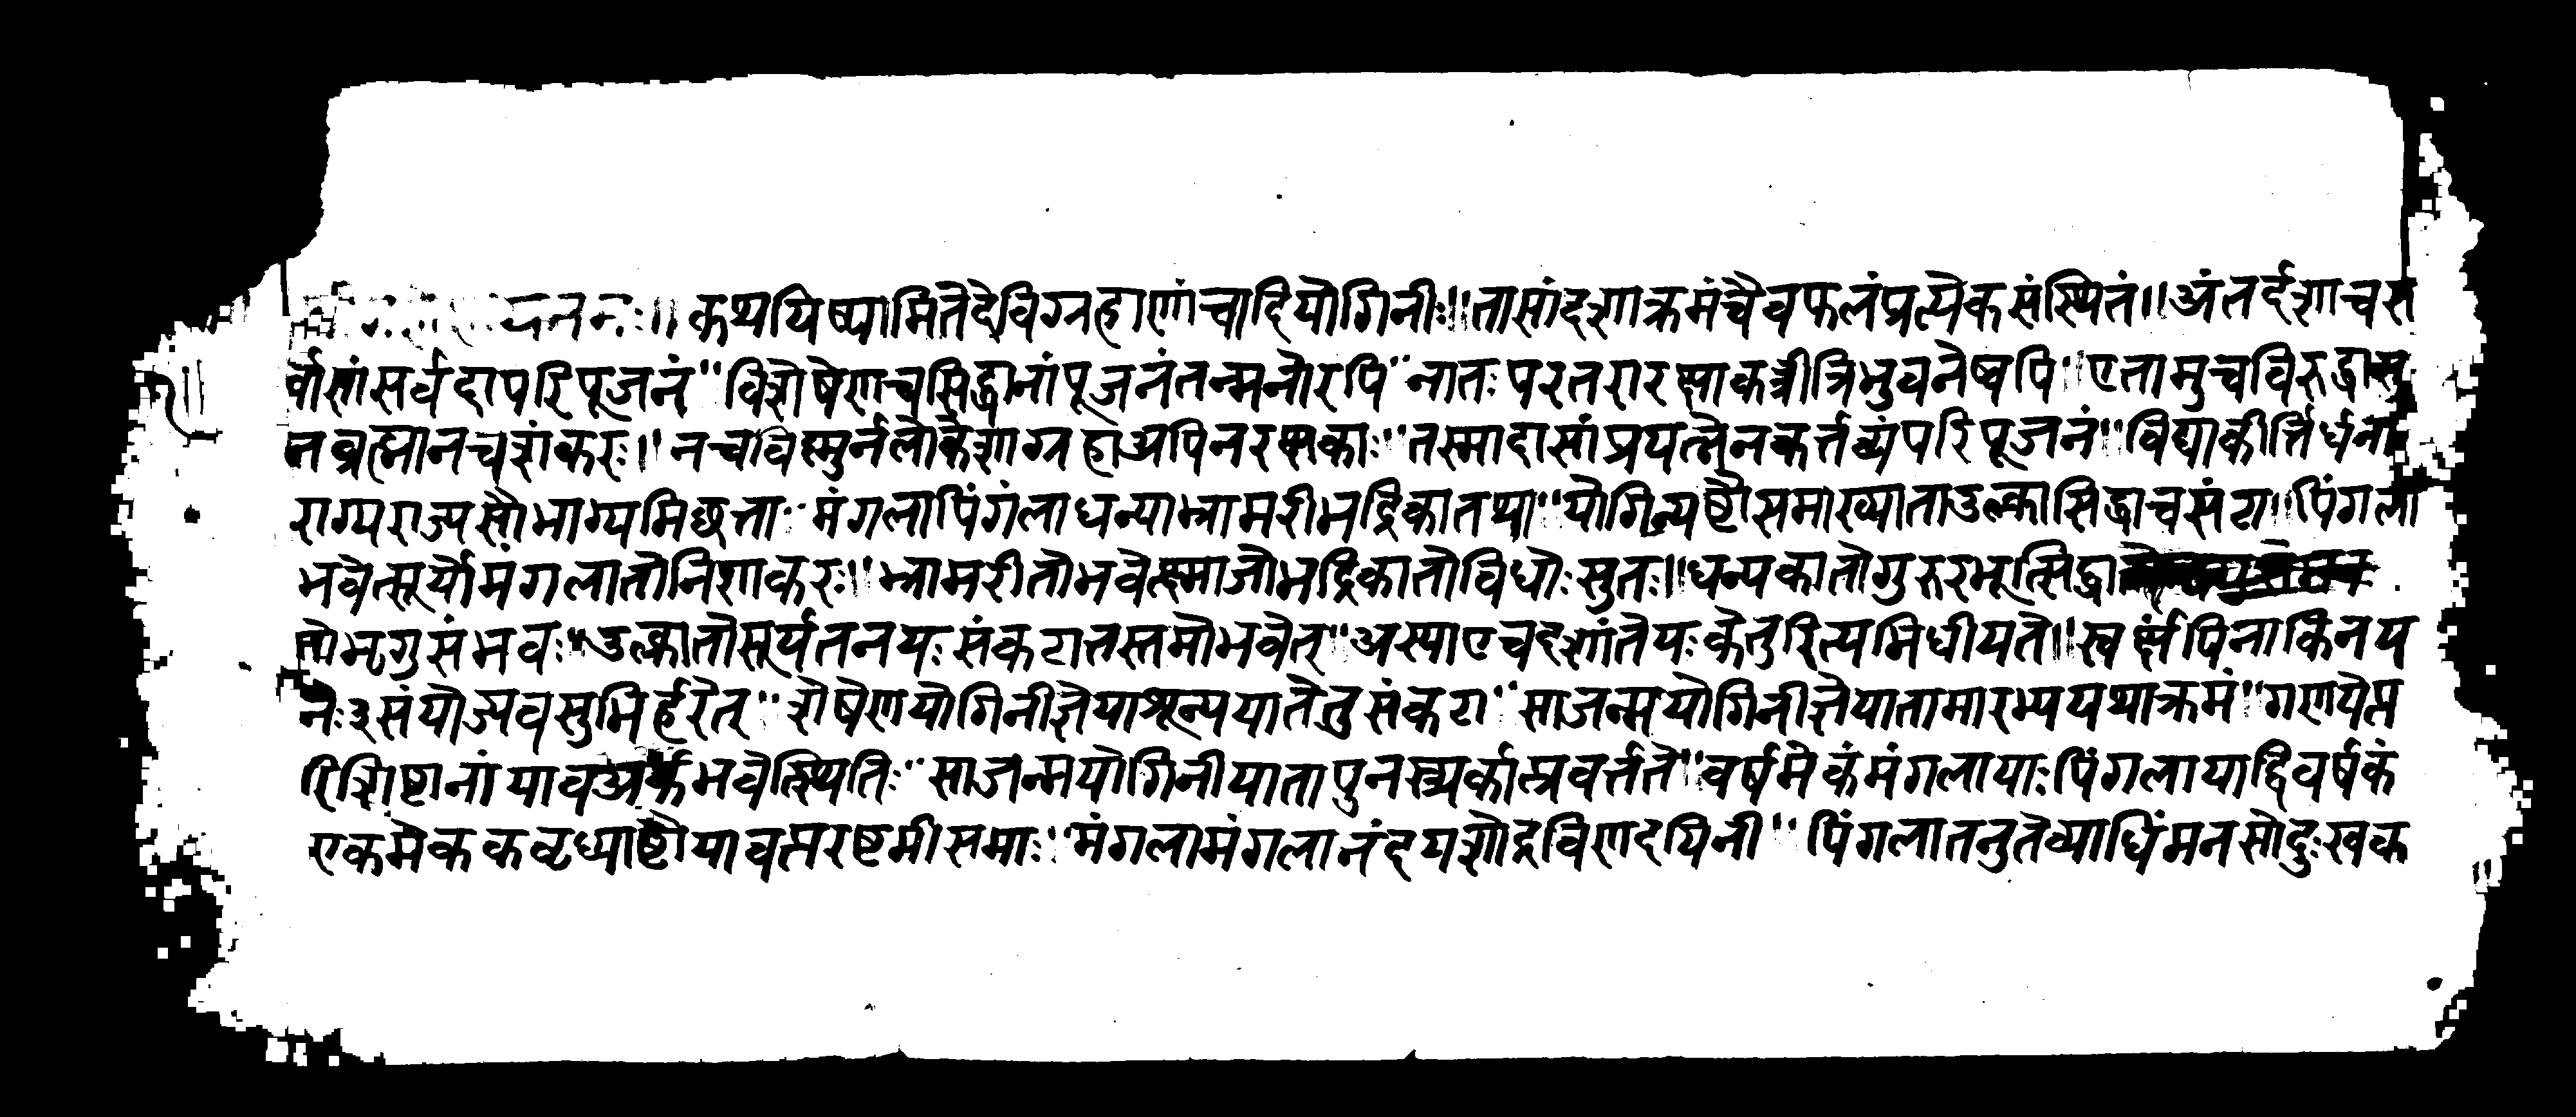 यननः॥ कथयिष्यामितेदेविग्नहाणांचादियोगिनीः॥तासांदशाक्रमंचैवफलंप्रत्येकसंस्थितं॥अंतर्दशाचस
र्वासांसर्वदापरिपूजनं॥विशेषेणचसिद्धानांपूजनंतन्मनोरपि॥नातःपरतरारक्षाकर्त्रीत्रिभुवनेष्वपि॥एतामुचविरुद्धासु
नब्रह्मानचशंकरः॥नचविष्मुर्नलोकेशाग्नहाअपिनरक्षकाः॥तस्मादासांप्रयत्नेनकर्त्तव्यंपरिपूजनं॥विद्याकीर्त्तिर्धना
राग्यराज्यसौभाग्यमिछत्ता॥मंगलापिंगंलाधन्याभ्रामरीभद्रिकातथा॥योगिन्यष्टौसमाख्याताउल्कासिद्धाचसंटा॥पिंगला
भवेत्सूर्योमंगलातोनिशाकरः॥भ्रामरीतोभवेत्क्ष्माजोभद्रिकातोविधोःसुतः॥धन्यकातोगुरुरभूत्सिद्धा
तोभृगुसंभवः॥उल्कातोसूर्यतनयःसंकटात्तस्तमोभवेत्॥अस्याएवदशांतेयःकेतुरित्यभिधीयते॥स्वर्क्षंपिनाकिनय
नेः३संयोज्यवसुभिर्हरेत्॥शेषेणयोगिनीज्ञेयाशून्ययातेतुसंकटा॥साजन्मयोगिनीज्ञेयातामारभ्ययथाक्रमं॥गणयेत्प
रिशिष्टानांयावअर्कंभवेत्स्थितिः॥साजन्मयोगिनीयातापुनस्त्र्यर्कात्प्रवर्त्तते॥वर्षमेकंमंगलायाःपिंगलायाद्विवर्षकं
एकमेककवृध्याष्टौयावत्परष्टमीसमाः॥मंगलामंगलानंदयशोद्रविणदयिनी॥पिंगलातनुतेव्याधिंमनसोदुःखक